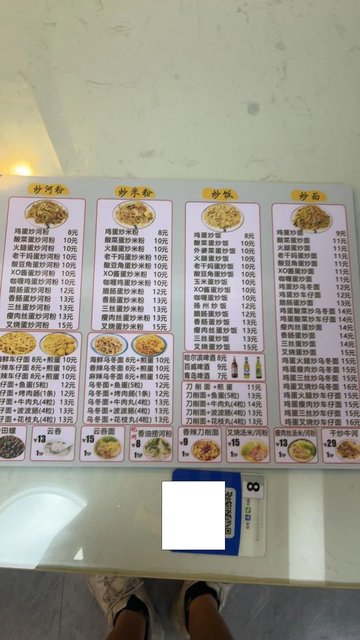 炒河粉
鸡蛋炒河粉 8元
酸菜炒河粉 10元
火腿蛋炒河粉 10元
老干妈蛋炒河粉 10元
酸豆角蛋炒河粉 10元
XO酱蛋炒河粉 10元
咖喱鸡蛋炒河粉 10元
腊肠蛋炒河粉 12元
香肠蛋炒河粉 13元
三丝蛋炒河粉 13元
瘦肉丝蛋炒河粉 13元
叉烧蛋炒河粉 15元
炒米粉
鸡蛋炒米粉 8元
酸菜蛋炒米粉 10元
火腿蛋炒米粉 10元
老干妈蛋炒米粉 10元
酸豆角蛋炒米粉 10元
XO酱蛋炒米粉 10元
咖喱鸡蛋炒米粉 10元
腊肠蛋炒米粉 12元
香肠蛋炒米粉 13元
三丝蛋炒米粉 13元
瘦肉丝蛋炒米粉 13元
叉烧蛋炒米粉 15元
炒饭
鸡蛋炒饭 8元
酸菜蛋炒饭 10元
外婆菜炒饭 10元
火腿蛋炒饭 10元
老干妈蛋炒饭 10元
酸豆角蛋炒饭 10元
玉米蛋炒饭 10元
XO酱蛋炒饭 10元
咖喱蛋炒饭 10元
扬州炒饭 12元
腊肠蛋炒饭 12元
香肠蛋炒饭 13元
瘦肉丝蛋炒饭 13元
三丝蛋炒饭 13元
叉烧蛋炒饭 15元
炒面
鸡蛋炒面 9元
酸菜蛋炒面 11元
火腿蛋炒面 11元
老干妈蛋炒面 11元
酸豆角蛋炒面 11元
XO酱蛋炒面 11元
咖喱蛋炒面 11元
鸡蛋炒乌冬面 12元
鸡蛋炒车仔面 12元
腊肠蛋炒面 13元
鸡蛋酸菜炒乌冬面 14元
鸡蛋酸菜炒车仔面 14元
瘦肉丝蛋炒面 14元
香肠蛋炒面 14元
三丝蛋炒面 14元
叉烧蛋炒面 15元
鸡蛋火腿炒乌冬面 15元
鸡蛋瘦肉炒乌冬面 16元
鸡蛋三丝炒乌冬面 16元
鸡蛋火腿炒车仔面 15元
鸡蛋瘦肉炒车仔面 16元
鸡蛋三丝炒车仔面 16元
鸡蛋叉烧炒乌冬面 16元
海鲜车仔面 8元+煎蛋 10元
香辣车仔面 8元+煎蛋 10元
麻辣车仔面 8元+煎蛋 10元
仔面+鱼蛋(5粒) 12元
仔面+烤内肠(1条) 12元
仔面+牛肉丸(4粒) 13元
仔面+波波肠(4粒) 13元
仔面+花枝丸(4粒) 13元
海鲜乌冬面 8元+煎蛋 10元
香辣乌冬面 8元+煎蛋 10元
麻辣乌冬面 8元+煎蛋 10元
乌冬面+鱼蛋(5粒) 12元
乌冬面+烤肉肠(1条) 12元
乌冬面+牛肉丸(4粒) 13元
乌冬面+波波肠(4粒) 13元
乌冬面+花枝丸(4粒) 13元
哈尔滨啤酒 8元
百威啤酒 9元
青岛啤酒 7元
刀削面+煎蛋 11元
刀削面+鱼蛋(5粒) 13元
刀削面+牛肉丸(4粒) 14元
刀削面+波波肠(4粒) 14元
刀削面+花枝丸(4粒) 14元
田螺
云吞
¥13
1份
云吞面
¥15
1份
香油捞河粉
¥8
1份
香辣刀削面
¥9
1份
叉烧汤米/河粉
¥15
1份
瘦肉丝汤米/河粉
¥13
1份
干炒牛河
¥29
1份
8